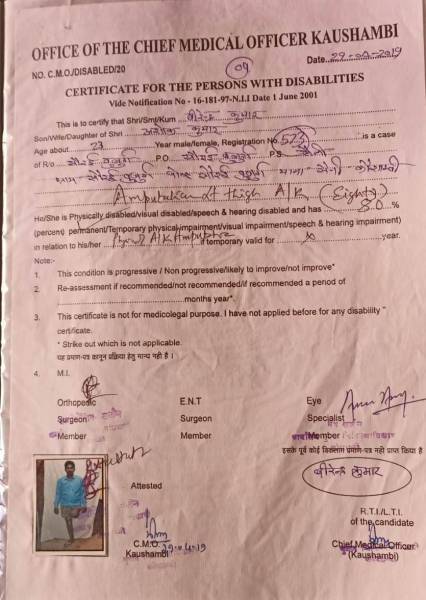 OFFICE OF THE CHIEF MEDICAL OFFICER KAUSHAMBI
NO. C.M.O./DISABLED/20
09
Date 29-04-2019
CERTIFICATE FOR THE PERSONS WITH DISABILITIES
Vide Notification No - 16-181-97-N.I.I Date 1 June 2001
This is to certify that Shri/Smt/Kum बीरेन्द्र कुमार
Son/Wife/Daughter of Shri कुमार
Age about 23 Year male/female, Registration No. 523 is a case
of R/o P.O. P.S.
Amputation Lt thigh A/K (Eighty)
He/She is Physically disabled/visual disabled/speech & hearing disabled and has 80 %
(percent) permanent/Temporary physical impairment/visual impairment/speech & hearing impairment)
in relation to his/her A/K if temporary valid for x year.
Note:-
1. This condition is progressive / Non progressive/likely to improve/not improve*
2. Re-assessment if recommended/not recommended/if recommended a period of
months year*.
3. This certificate is not for medicolegal purpose. I have not applied before for any disability "
certificate.
* Strike out which is not applicable.
यह प्रमाण-पत्र कानून प्रक्रिया हेतु मान्य नही है ।
4. M.I.
Orthopedic E.N.T Eye
Surgeon Surgeon Specialist
Member Member Member
इसके पूर्व कोई विकलांग प्रमाण-पत्र नही प्राप्त किया है
बीरेन्द्र कुमार
Attested
R.T.I./L.T.I.
of the candidate
C.M.O. Chief Medical Officer
Kaushambi (Kaushambi)